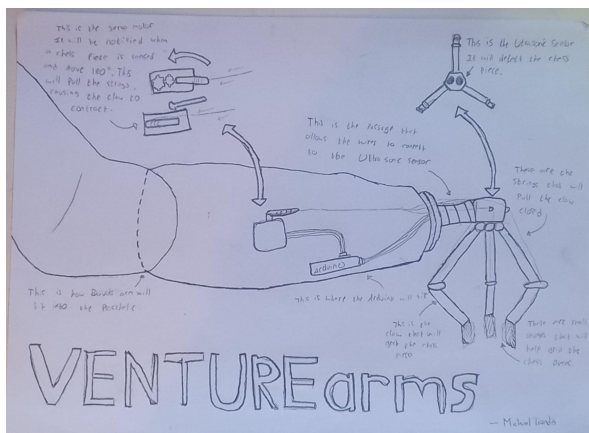 This is the servo motor
It will be notified when
a chess piece is sensed
and move 180°. This
will pull the strings,
causing the claw to
contract.
This is the Ultrasonic Sensor
It will detect the chess
piece.
This is the passage that
allows the wires to connect
to the Ultrasonic sensor
These are the
strings that will
pull the claw
closed
arduino
This is how arm will
fit into the
This is where the Arduino will
This is the
claw that will
grab the chess
piece
These are small
that will
help grip the
chess
VENTURE arms